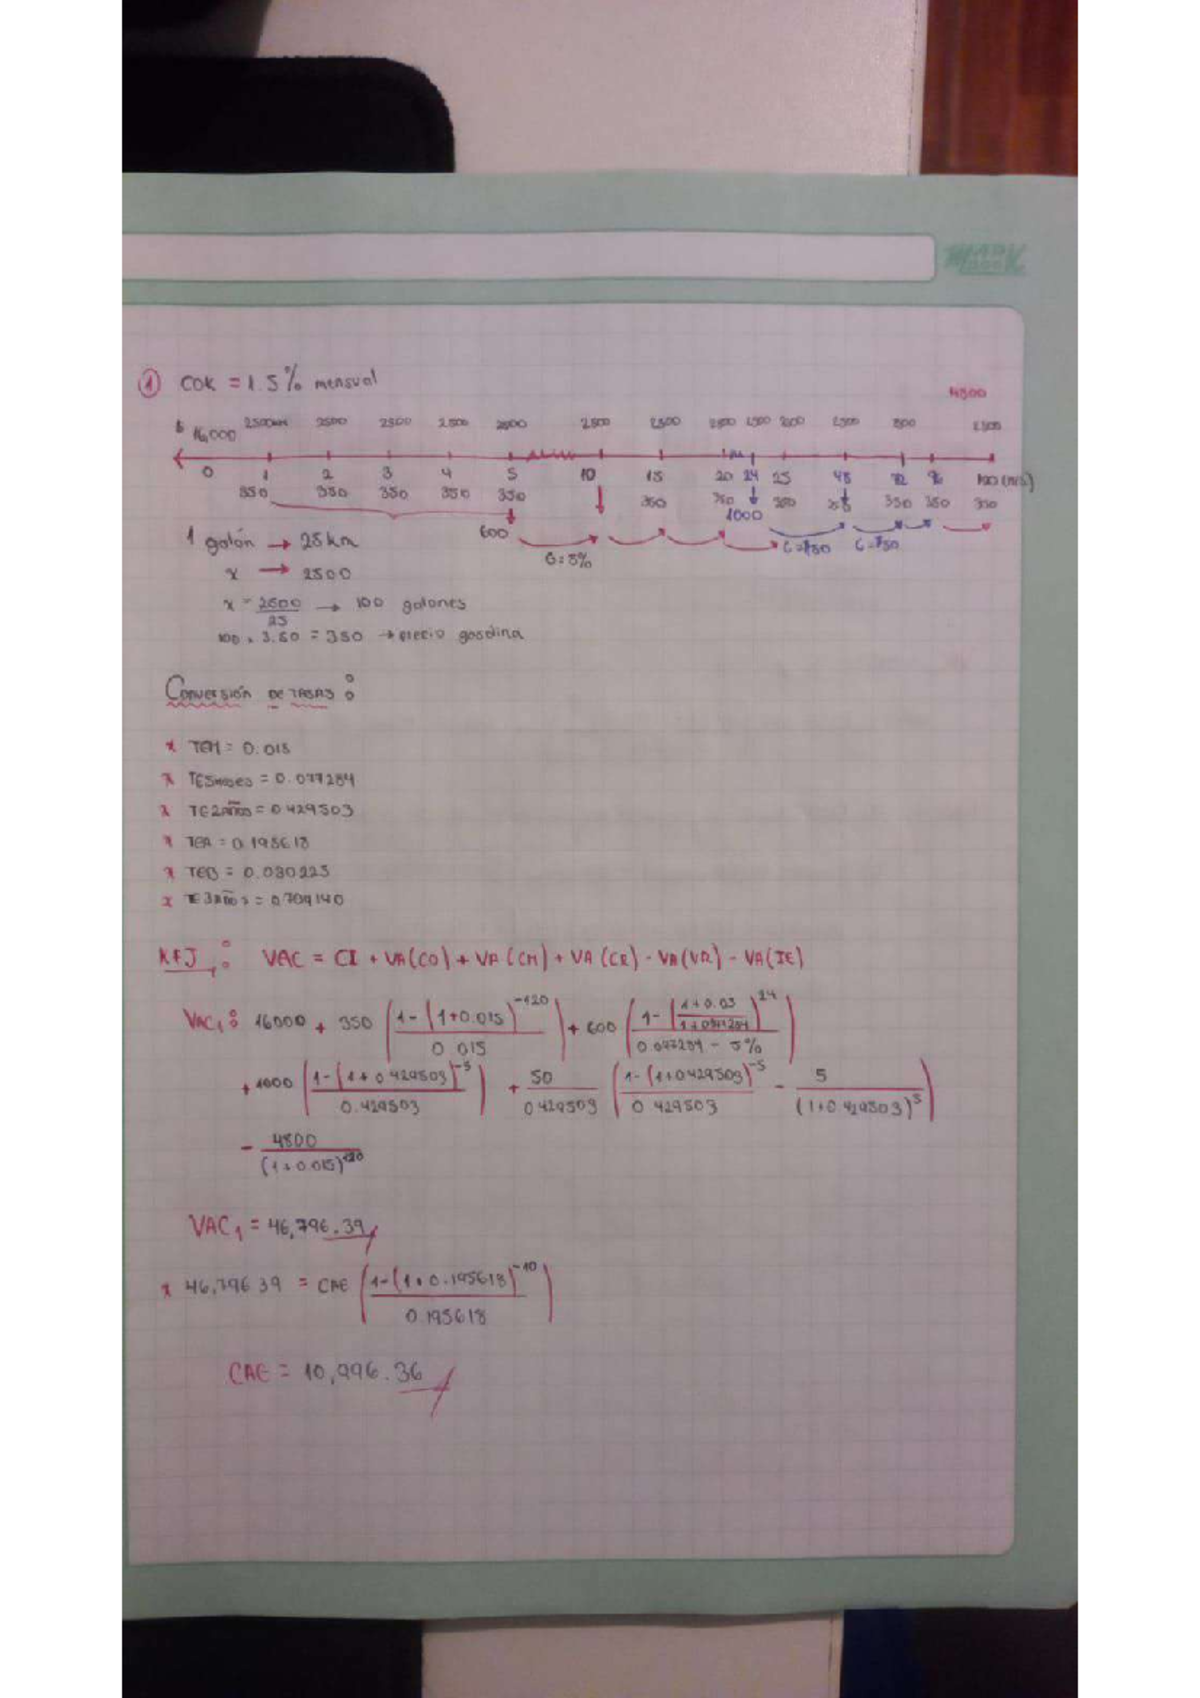 ① COK = 1.5% mensual
4800
$ 16,000 2500km 2500 2500 2500 2500 2500 2500 2500 2500 2500 2500 2500
0 1 2 3 4 5 10 15 20 24 25 48 72 96 120 (mes)
350 350 350 350 350 350 350 350 350 350 350
600 1000
G=5% G=50 G=50
1 galón → 25km
x → 2500
x = 2500/25 → 100 galones
100 x 3.50 = 350 → precio gasolina
Conversión de tasas:
* TEM = 0.015
* TE5meses = 0.077284
* TE2años = 0.429503
* TEA = 0.195618
* TEB = 0.030225
* TE3años = 0.709140
VAC = CI + VA(CO) + VA(CM) + VA(CR) - VA(VR) - VA(IE)
VAC1: 16000 + 350 (1-(1+0.015)^-120 / 0.015) + 600 (1-(1+0.05 / 1+0.077284)^24 / 0.077284 - 5%)
+ 1000 (1-(1+0.429503)^-5 / 0.429503) + 50/0.429503 (1-(1+0.429503)^-5 / 0.429503 - 5/(1+0.429503)^5)
- 4800/(1+0.015)^120
VAC1 = 46,796.39
* 46,796.39 = CAE (1-(1+0.195618)^-10 / 0.195618)
CAE = 10,996.36